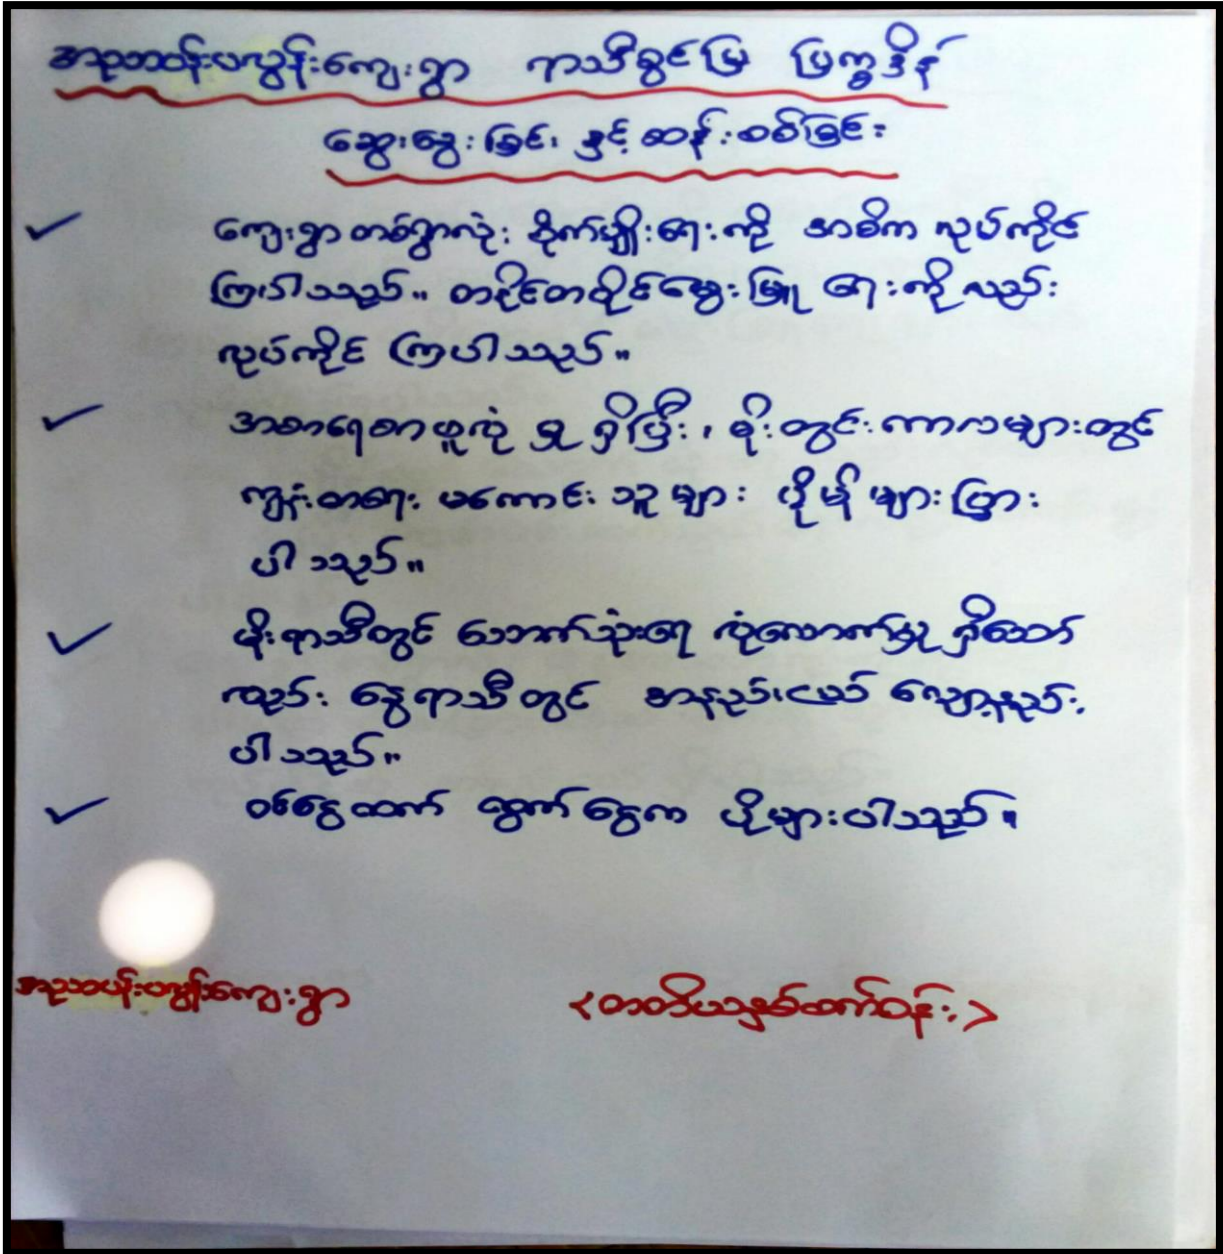 အညာပန်းပလွန်းကျေးရွာ ရာသီခွင်ပြ ပြက္ခဒိန်
ဆွေးနွေးခြင်း နှင့် ဆန်းစစ်ခြင်း
ကျေးရွာတစ်ရွာလုံး စိုက်ပျိုးရေးကို အဓိက လုပ်ကိုင်
ကြပါသည်။ တနိုင်တပိုင်မွေးမြူ ရေးကိုလည်း
လုပ်ကိုင် ကြပါသည်။
အစာရေစာဖူလုံ မှု ရှိပြီး၊ မိုးတွင်းကာလများတွင်
ကျန်းမာရေး မကောင်းသူများ ပိုမို များပြား
ပါသည်။
မိုးရာသီတွင် သောက်သုံးရေ လုံလောက်မှု ရှိသော်
လည်း နွေရာသီတွင် အနည်းငယ် လျော့နည်း
ပါသည်။
ဝင်ငွေထက် ထွက်ငွေက ပိုများပါသည်။
အညာပန်းပလွန်းကျေးရွာ
<တတိယနှစ်ထက်ဝန်း>